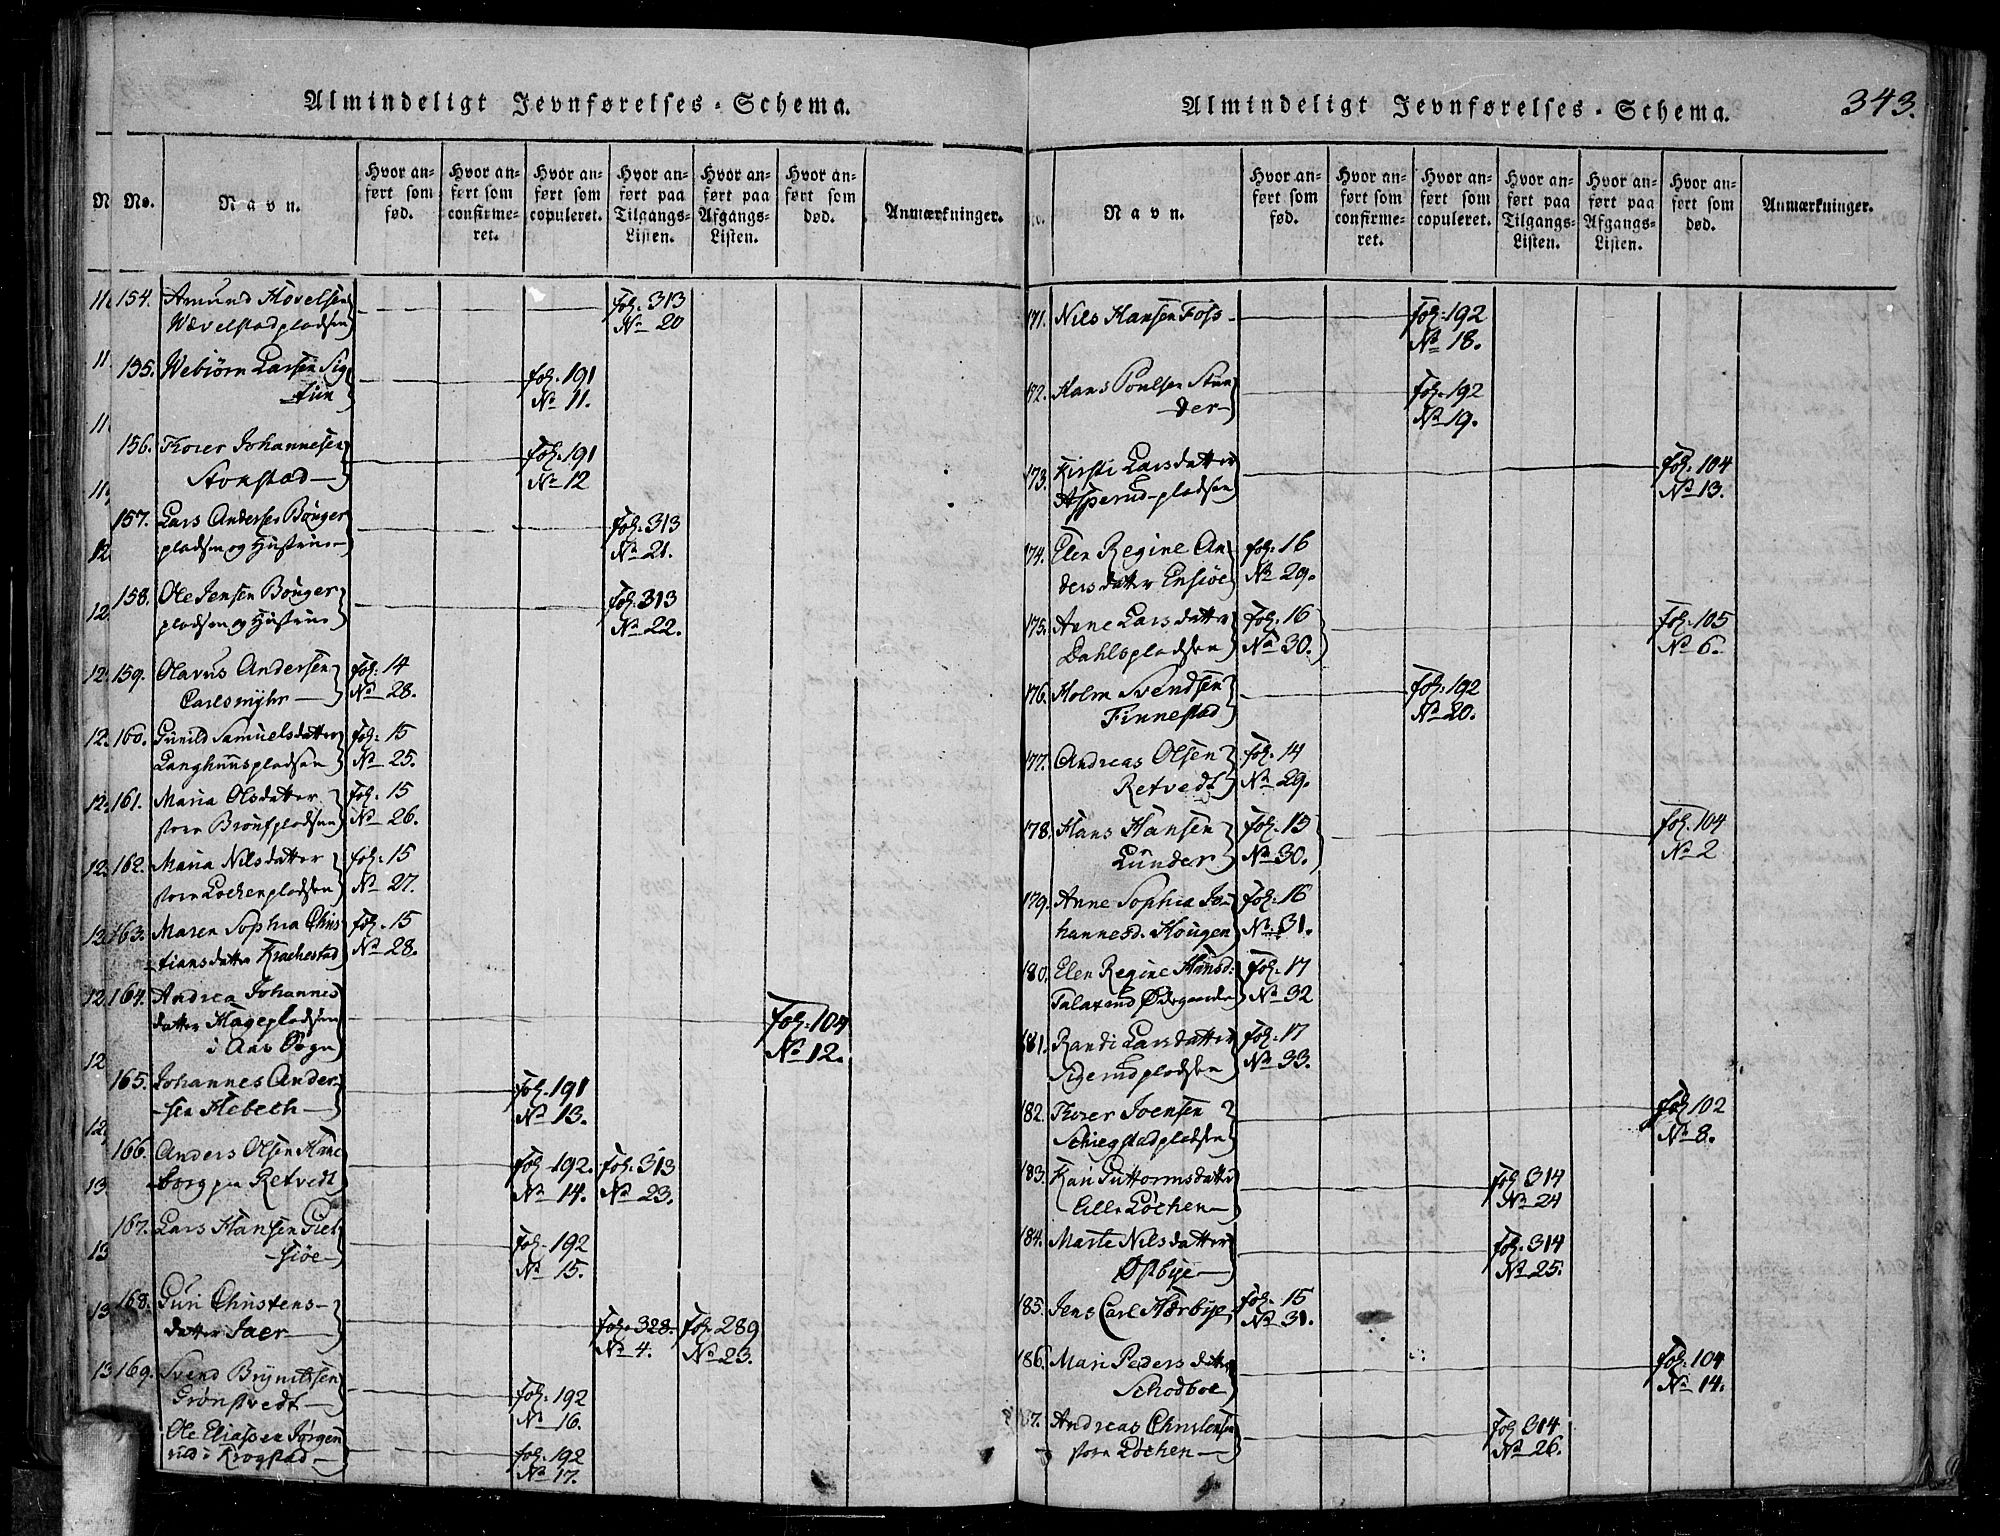 Almindeligt Jevnførelses-Schema.
No. Navn. Hvor anført som fød. Hvor anført som confirmeret. Hvor anført som copuleret. Hvor anført paa Tilgangs-Listen. Hvor anført paa Afgangs-Listen. Hvor anført som død. Anmærkninger.
154. Amund Hovelsen fol. 313
Wævelstadpladsen No 20
155. Webiørn Larsen Sig fol. 191
tun No 11.
156. Thoer Johannesen fol. 191
Stonstad No 12
157. Lars Andersen Bonger fol. 313
pladsen og Hustrue No 21.
158. Ole Jensen Bonger fol. 313
pladsen og Hustrue No 22.
159. Olavus Andersen fol. 14
Carlsmyhr No 28.
160. Gunild Samuelsdatter fol. 15
Langhuuspladsen No 25.
161. Maria Olsdatter fol. 15
No 26.
162. Maria Nilsdatter fol. 15
store Lochenpladsen No 27.
163. Maren Sophia Chris fol. 15
tiansdatter Krachestad No 28.
164. Andrea Johannes
datter Hagepladsen fol. 104
i Aas Sogn No 12.
165. Johannes Ander- fol. 191
sen Flebech No 13.
166. Anders Olsen Hane fol. 192. fol. 313
borg paa Retvedt No 14. No 23.
167. Lars Hansen Giet fol. 192
siøe No 15.
168. Guri Christens- fol. 328. fol. 289
datter Jaer No 4. No 23.
169. Svend Brynildsen fol. 192
Grønstvedt No 16.
Ole Eliassen Jørgen fol. 192
rud i Krogstad No 17.
Almindeligt Jevnførelses-Schema. 343.
Navn. Hvor anført som fød. Hvor anført som confirmeret. Hvor anført som copuleret. Hvor anført paa Tilgangs-Listen. Hvor anført paa Afgangs-Listen. Hvor anført som død. Anmærkninger.
171. Nils Hansen Foss fol. 192
No 18.
172. Hans Poulsen Stun fol. 192
der No 19.
173. Kirsti Larsdatter fol. 104
Asperud-pladsen No 13.
174. Elen Regine An fol. 16
dersdatter Ensiøe No 29.
175. Anne Larsdatter fol. 16 fol. 105
Dahlspladsen No 30. No 6.
176. Holm Svendsen fol. 192
Finnestad No 20.
177. Andreas Olsen fol. 14
Retvedt No 29.
178. Hans Hansen fol. 15 fol. 104
Lunder No 30. No 2
179. Anne Sophia Jo fol. 16
hannesd. Hougen No 31.
180. Elen Regine Hansd: fol. 17
No 32
181. Randi Larsdatter fol. 17
Sigerudpladsen No 33.
182. Thoer Joensen fol. 102
Schiegstadpladsen No 8.
183. Kari Guttormsdatter fol. 314
Lille Løchen No 24
184. Marte Nilsdatter fol. 314
Østbye No 25.
185. Jens Carl Hærbye fol. 15
No 31.
186. Mari Pedersdatter fol. 104
Schodboe No 14.
187. Andreas Christensen fol. 314
store Løchen No 26.